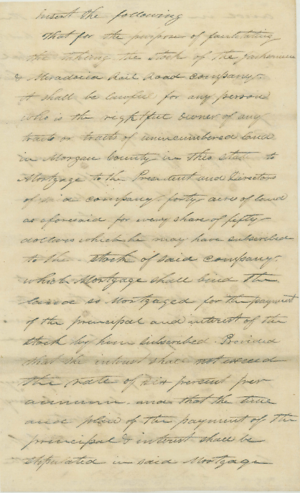 Insert the following
That for the purpose of facilitating
the taking the stock of the Jacksonville
& Meredosia Rail Road company
it shall be lawful for any person
who is the rightful owner of any
tract or tracts of unincumbered land
in Morgan County in this State to
Mortgage to the President and Directors
of said company forty acres of land
as aforesaid for every share of fifty
dollars which he may have subscribed
to the stock of said company
which Mortgage shall bind the
land so Mortgaged for the payment
of the principal and interest of the
stock by him subscribed Provided
that the interest shall not exceed
the rate of six percent per
annum and that the time
and place of the payment of the
principal & interest shall be
stipulated in said Mortgage